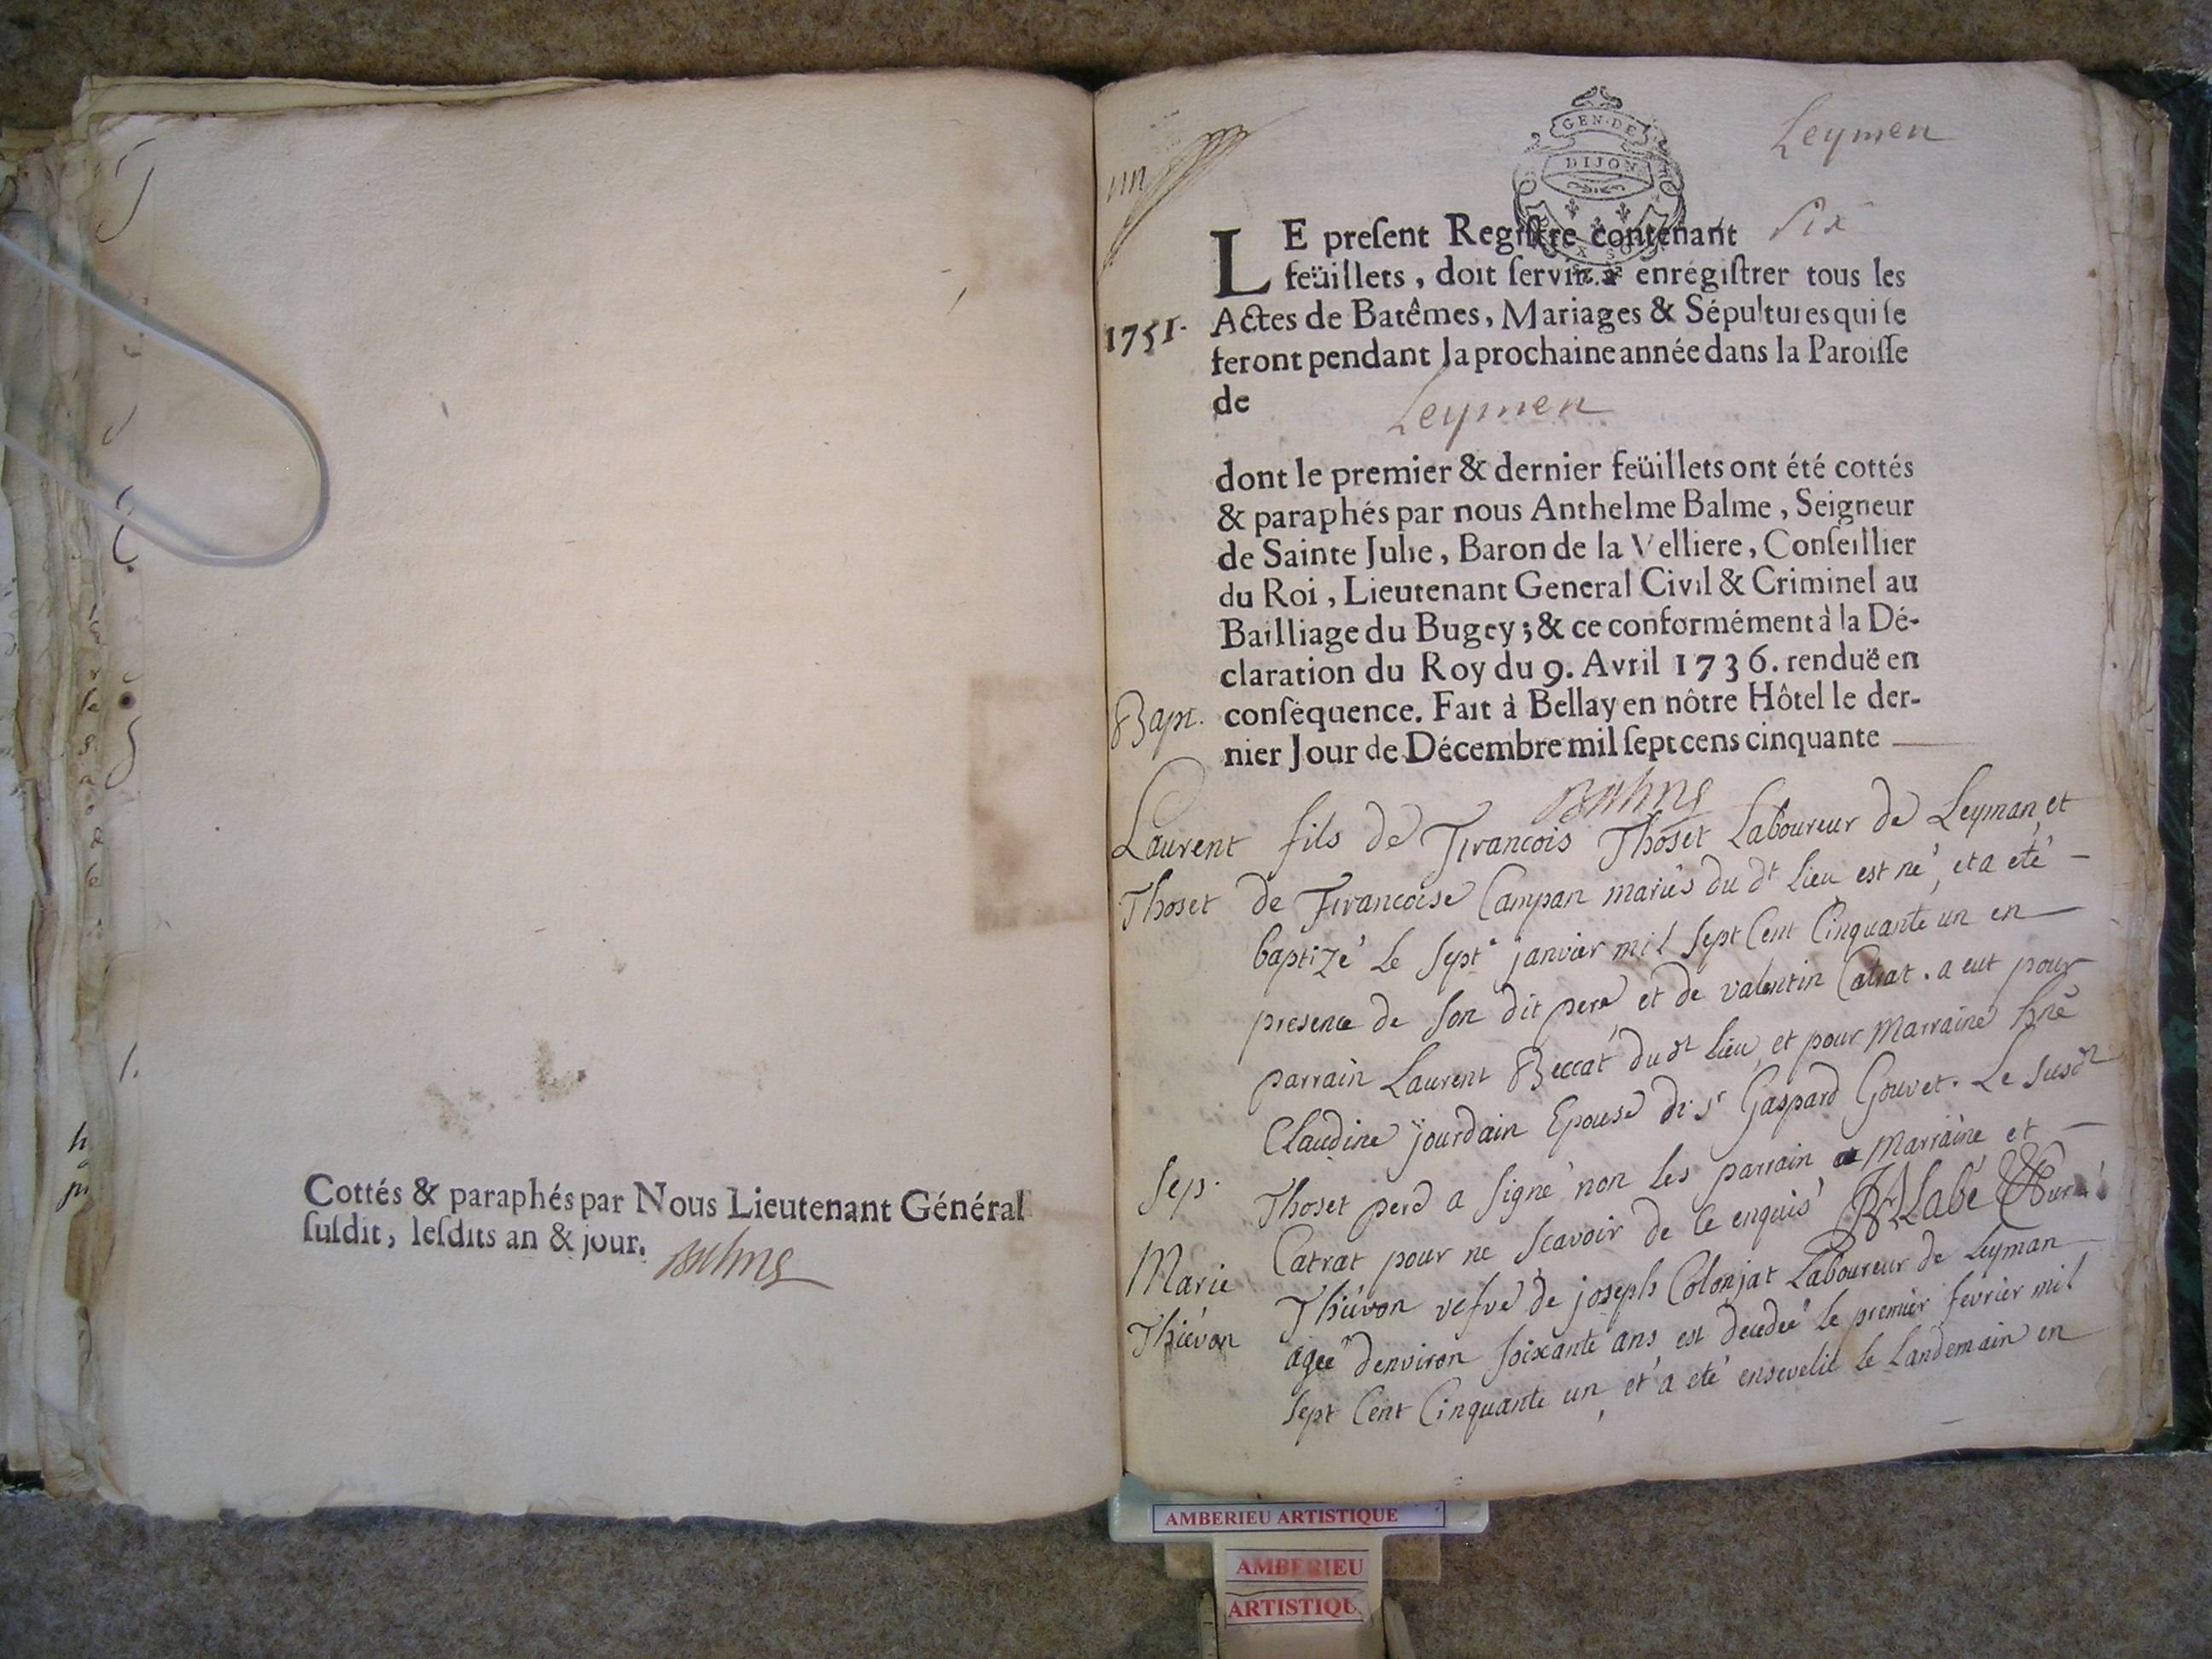 Cottés & paraphés par Nous Lieutenant Général
ſuſdit, leſdits an & jour.
Leymen
un
GEN. DE
DIJON
LE preſent Regiſtre contenant Six
feüillets, doit ſervir à enrégiſtrer tous les
1751. Actes de Batêmes, Mariages & Sépultures qui ſe
feront pendant la prochaine année dans la Paroiſſe
de Leymen
dont le premier & dernier feüillets ont été cottés
& paraphés par nous Anthelme Balme, Seigneur
de Sainte Julie, Baron de la Velliere, Conſeillier
du Roi, Lieutenant General Civil & Criminel au
Bailliage du Bugey; & ce conformément à la Dé-
claration du Roy du 9. Avril 1736. renduë en
Bapt. conſéquence. Fait à Bellay en nôtre Hôtel le der-
nier Jour de Décembre mil ſept cens cinquante
Laurent fils de François Thoset Laboureur de Leyman, et
Thoset de Francoise Campan mariés du dt lieu est né, et a eté
baptizé le septe janvier mil sept Cent Cinquante un en
presence de son dit pere et de valentin Catrat. a eut pour
parrain Laurent Beccat du dt lieu, et pour Marraine hnê
Claudine jourdain Epouse du sr Gaspard Gouvet. Le susdt
Sep. Thoset pere a signé non les parrain et Marraine et
Catrat pour ne scavoir de ce enquis Labé Curé
Marie Thiévon vefve de joseph Colonjat Laboureur de Leyman
Thiévon agée denviron soixante ans est decedée le premier fevrier mil
sept Cent Cinquante un, et a eté ensevelie le Landemain en
AMBERIEU ARTISTIQUE
AMBERIEU
ARTISTIQU